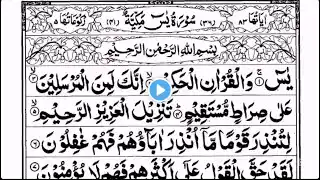 اٰيَاتُهَا ٨٣ (٣٦) سُوْرَةُ يٰسٓ مَكِّيَّةٌ (٤١) رُكُوْعَاتُهَا ٥
بِسْمِ اللّٰهِ الرَّحْمٰنِ الرَّحِيْمِ
يٰسٓ ۝١ وَالْقُرْاٰنِ الْحَكِيْمِ ۝٢ اِنَّكَ لَمِنَ الْمُرْسَلِيْنَ ۝٣
عَلٰى صِرَاطٍ مُّسْتَقِيْمٍ ۝٤ تَنْزِيْلَ الْعَزِيْزِ الرَّحِيْمِ ۝٥
لِتُنْذِرَ قَوْمًا مَّاۤ اُنْذِرَ اٰبَآؤُهُمْ فَهُمْ غٰفِلُوْنَ ۝٦
لَقَدْ حَقَّ الْقَوْلُ عَلٰۤى اَكْثَرِهِمْ فَهُمْ لَا يُؤْمِنُوْنَ ۝٧